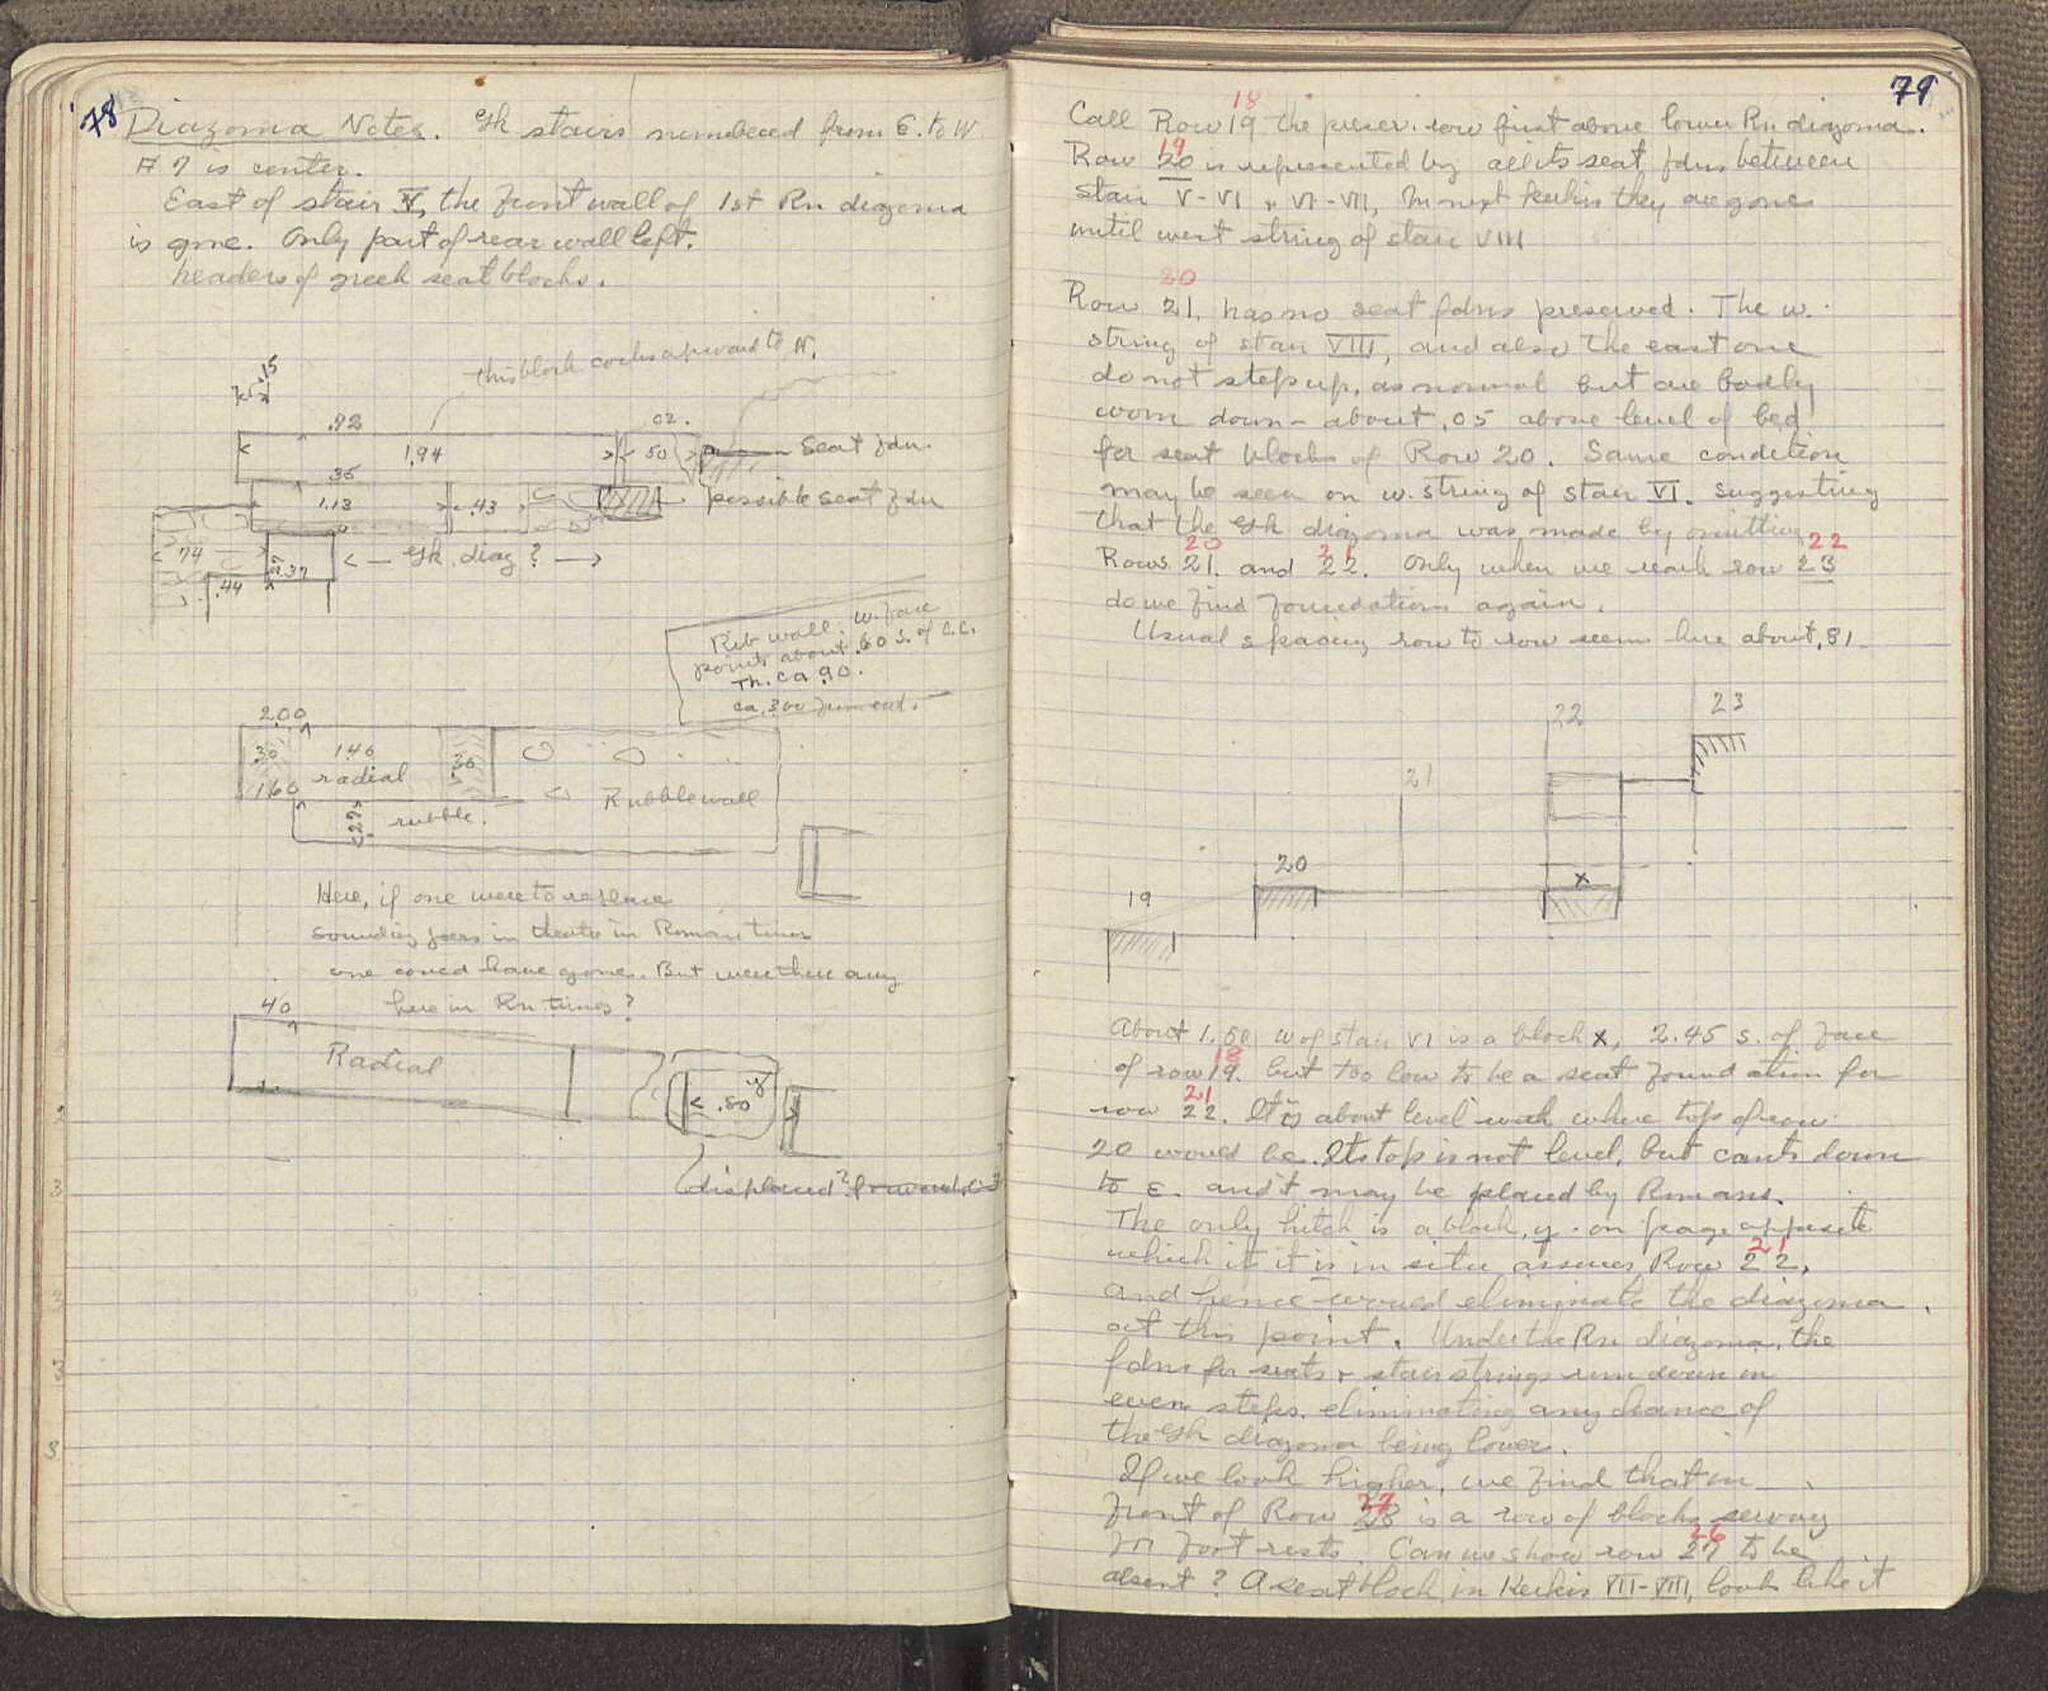 78
Diazoma Notes. Gk stairs numbered from E. to W
# 7 is center.
East of stair V, the front wall of 1st Rn diazoma
is gone. Only part of rear wall left.
headers of greek seat blocks.
this block cocks upward to N.
.15
.92
02.
1.94
50
Seat fdn.
.35
1.13
.43
possible seat fdn
.74
Gk. diaz?
.37
.44
Rib wall. W. face
points about .60 S. of C.C.
Th. ca .90.
ca. 3.00 from end.
2.00
.30
1.40
.30
radial
1.60
Rubble wall
.27
rubble.
Here, if one were to replace
sounding jars in theatre in Roman times
one could have gone. But were there any
here in Rn times?
40
Radial
.50
y
displaced? forward .03
79
18
Call Row 19 the preser. row first above lower Rn diazoma.
19
Row 20 is represented by all its seat fdns between
Stair V-VI + VI-VII, In next kerkis they are gone
until west string of stair VIII
20
Row 21. has no seat fdns preserved. The w.
string of stair VIII, and also the east one
do not step up, as normal but are badly
worn down - about .05 above level of bed
for seat blocks of Row 20. Same condition
may be seen on w. string of stair VI. suggesting
that the Gk diazoma was made by omitting
20 21 22
Rows 21. and 22. Only when we reach row 23
do we find foundations again.
Usual spacing row to row seems here about .81
23
22
21
20
x
19
About 1.50 W of stair VI is a block x, 2.45 S. of face
18
of row 19. but too low to be a seat foundation for
21
row 22. It is about level with where top of row
20 would be. Its top is not level, but cants down
to E. and it may be placed by Romans.
The only hitch is a block, y. on page opposite
21
which if it is in situ assures Row 22,
and hence would eliminate the diazoma
at this point. Under the Rn diazoma, the
fdns for seats + stair strings run down in
even steps. eliminating any chance of
the Gk diazoma being lower.
If we look higher, we find that in
27
front of Row 28 is a row of blocks serving
26
for foot rests. Can we show row 27 to be
absent? A seat block in Kerkis VII-VIII, look like it